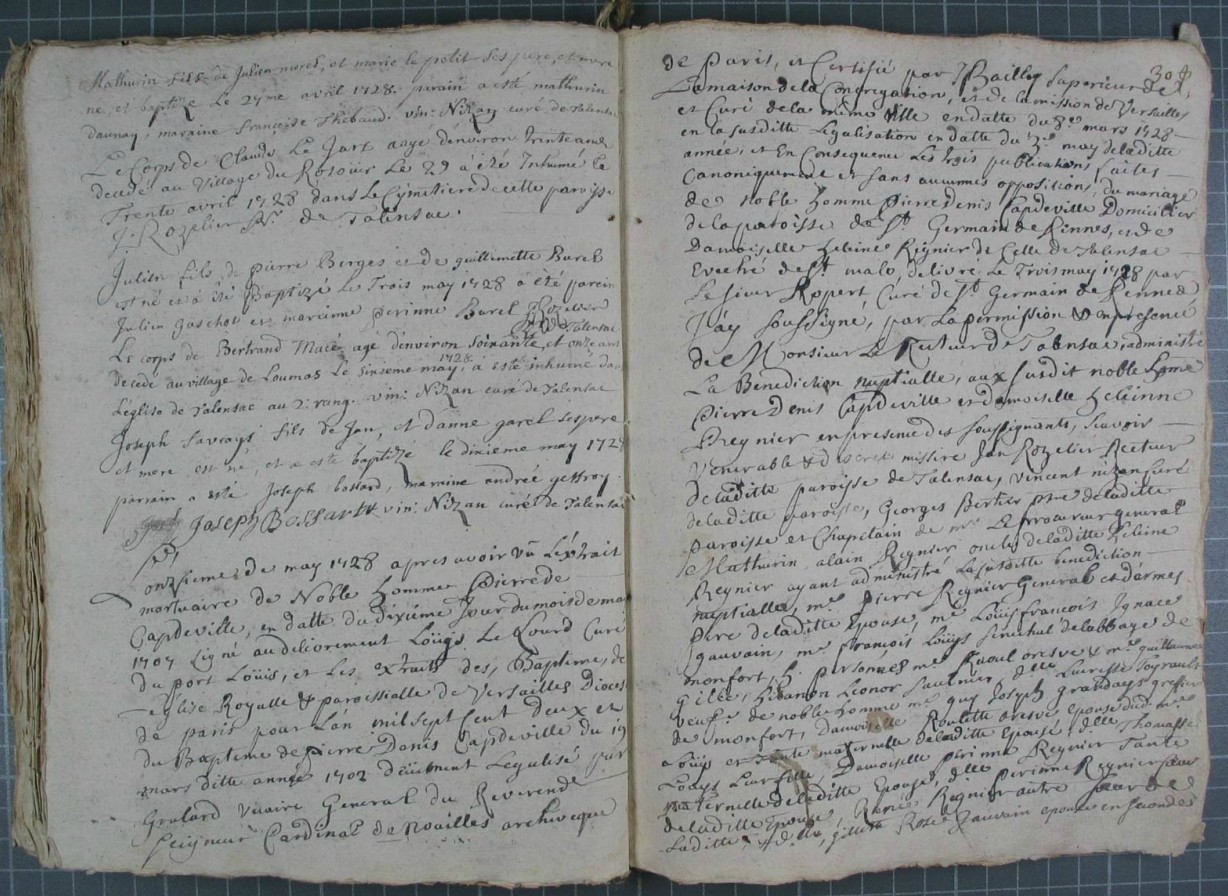 Mathurin fils de Julien morel, et marie le petit ses pere, et mere
ne, et baptize Le 27me avril 1728. parain a esté mathurin
daunay, maraine françoise Thebaud. vin: Nizan curé de Talensac
Le Corps de Claude Le Jart aagé denviron trente ans
decedé au Village du Rosouir Le 29 a été Inhumé le
Trente avril 1728 dans Le Cymitiere de cette paroisse
J. Rozelier Rr. de Talensac.
Julien fils de pierre Berges et de guillemette Burel
est né et a été Baptizé Le Trois may 1728 a été parein
Julien gaschot et mareinne perinne Burel J Rozelier
Rr de Talensac
Le corps de Bertrand Macé agé denviron soixante, et onze ans
decedé au village de Loumas Le sixseme may 1728 a esté inhumé dans
L'eglise de Talensac au 2e rang. vin: Nizan curé de Talensac
Joseph fils de Jan, et d'anne garel ses pere
et mere est né, et a esté baptizé le dixieme may 1728
parrain a esté Joseph bossard, maraine andrée geffroy.
Joseph Bossart vin: Nizan curé de Talensac
onzieme de may 1728 apres avoir vû L'extrait
mortuaire de Noble homme Pierre de
Capdeville, en datte du dixiéme Jour du mois de may
1707 signé au deliorement Loüys Le Lourd Curé
du port Loüis, et Les Extraits des Baptême, de
eglise Royalle & paroissialle de Versailles Dioces
de paris pour L'an mil sept Cent deux et
du Baptême de pierre Denis Capdeville du 19
mars ditte année 1702 düement Legalisé par
Vicaire General du Reverend
Seigneur Cardinal de Noailles archiveque
304
de Paris, et Certifié par J Bailly Superieur de
La maison de la Congregation, et de la mission de Versailles
et Curé de la même Ville en datte du 8e mars 1728
en la susditte Legalisation en datte du 3e may de laditte
année, et En Consequence Les trois publications faites
Canoniquement et sans aucunnes oppositions, du mariage
de noble homme Pierre Denis Capdeville Domicilier
de la paroisse de St Germain de Rennes, et de
Damoiselle heleine Regnier de Celle de Talensac
Evéché de St malo, delivré Le Trois may 1728 par
Le sieur Ruppert Curé de St Germain de Rennes
J'ay soussigné, par La permission & en presence
de Monsieur Le Recteur de Talensac, administré
La Benediction nuptialle, aux susdit noble homme
Pierre Denis Capdeville et damoiselle heleinne
Regnier en presence des soussignants, sçavoir
Venerable & discret missire Jan Rozelier Recteur
de laditte paroisse de Talensac, Vincent nizan Curé
de laditte paroisse, Georges Bertier ptre de laditte
paroisse et Chapelain de mr Le procureur general
Mathurin alain Regnier oncle de laditte heleine
Regnier ayant administré La susditte benediction
nuptialle, me Pierre Regnier General et d'armes
Pere de laditte Epouse, me Loüis francois Ignace
gauvain, me francois Loüys Senechal de labbaye de
monfort, me Raoul oresve & me guillaume
Gillé, Leonor Saulnier, dlle Lucresse Toyrault
veufe de noble homme me guy Joseph grandays greffier
de monfort, damoiselle Roulette oresve, epouse dud. me
Loüys et Tante maternelle de laditte Epouse, dlle Thomasse
Loüys Leur fille, Damoiselle Perinne Regnier Tante
paternelle de laditte Epouse, dlle Perinne Regnier sœur
de laditte Epouse, Renée Regnier autre Sœur de
Laditte, & dlle gillette Rose Gauvain epouse en secondes